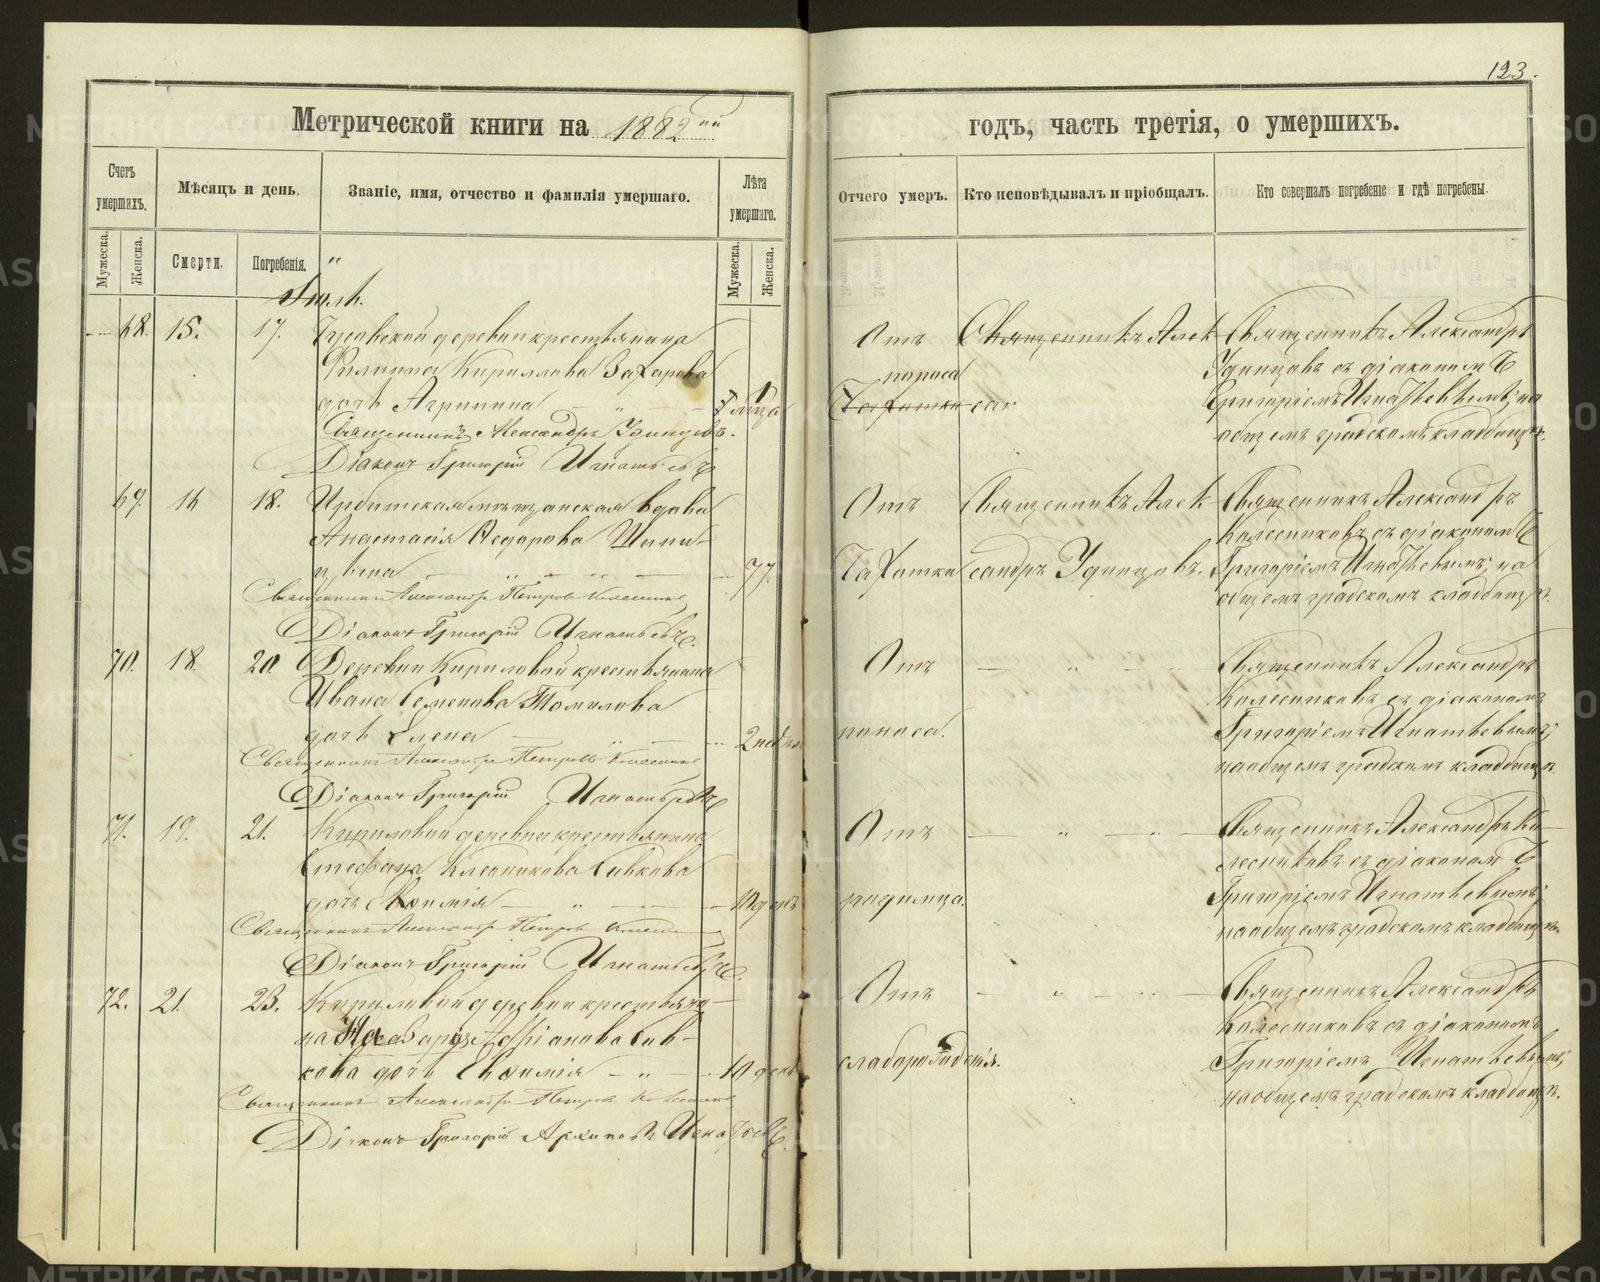 123.
Метрической книги на 1882ой
годъ, часть третія, о умершихъ.
Счетъ умершихъ.
Мѣсяцъ и день.
Званіе, имя, отчество и фамилія умершаго.
Лѣта умершаго.
Отчего умеръ.
Кто исповѣдывалъ и пріобщалъ.
Кто совершалъ погребеніе и гдѣ погребены.
Мужеска.
Женска.
Смерти.
Погребенія.
Мужеска.
Женска.
Іюль.
68. 15. 17. деревни крестьянина
Филиппа Кирилова Захарова
дочь Агрипина
Священникъ Александръ Удинцевъ.
Діаконъ Григорій Игнатьевъ
Отъ
поноса
Священникъ Алек
Священникъ Александръ
Удинцовъ съ діакономъ
Григоріемъ Игнатьевымъ; на
общемъ градскомъ кладбищѣ.
69. 16 18. Ирбитская мѣщанская вдова
Анастасія Ѳедорова
77.
Священникъ Александръ Петровъ
Діаконъ Григорій Игнатьевъ.
Отъ
Чахотки
Священникъ Алек
сандръ Удинцовъ.
Священникъ Александръ
Колесниковъ съ діакономъ
Григоріемъ Игнатьевымъ; на
общемъ градскомъ кладбищѣ.
70. 18 20. Деревни Кириловой крестьянина
Ивана Семенова Томилова
дочь Елена
2 нед
Священникъ Александръ Петровъ
Діаконъ Григорій Игнатьевъ
Отъ
поноса.
Священникъ Александръ
Колесниковъ съ діакономъ
Григоріемъ Игнатьевымъ;
на общемъ градскомъ кладбищѣ.
71. 19. 21. Кириловой деревни крестьянина
Стефана Савкова
дочь Евѳимія
10 дней
Священникъ Александръ Петровъ
Діаконъ Григорій Игнатьевъ.
Отъ
родимца.
Священникъ Александръ Ко-
лесниковъ съ діакономъ
Григоріемъ Игнатьевымъ;
на общемъ градскомъ кладбищѣ.
72. 21. 23. Кириловой деревни крестьяни-
на Назарія Сав-
кова дочь Евѳимія
10 дней
Священникъ Александръ Петровъ
Діаконъ Григорій Архиповъ Игнатьевъ.
Отъ
слаборожденія.
Священникъ Александръ
Колесниковъ съ діакономъ
Григоріемъ Игнатьевымъ;
на общемъ градскомъ кладбищѣ.
METRIKI.GASO-URAL.RU